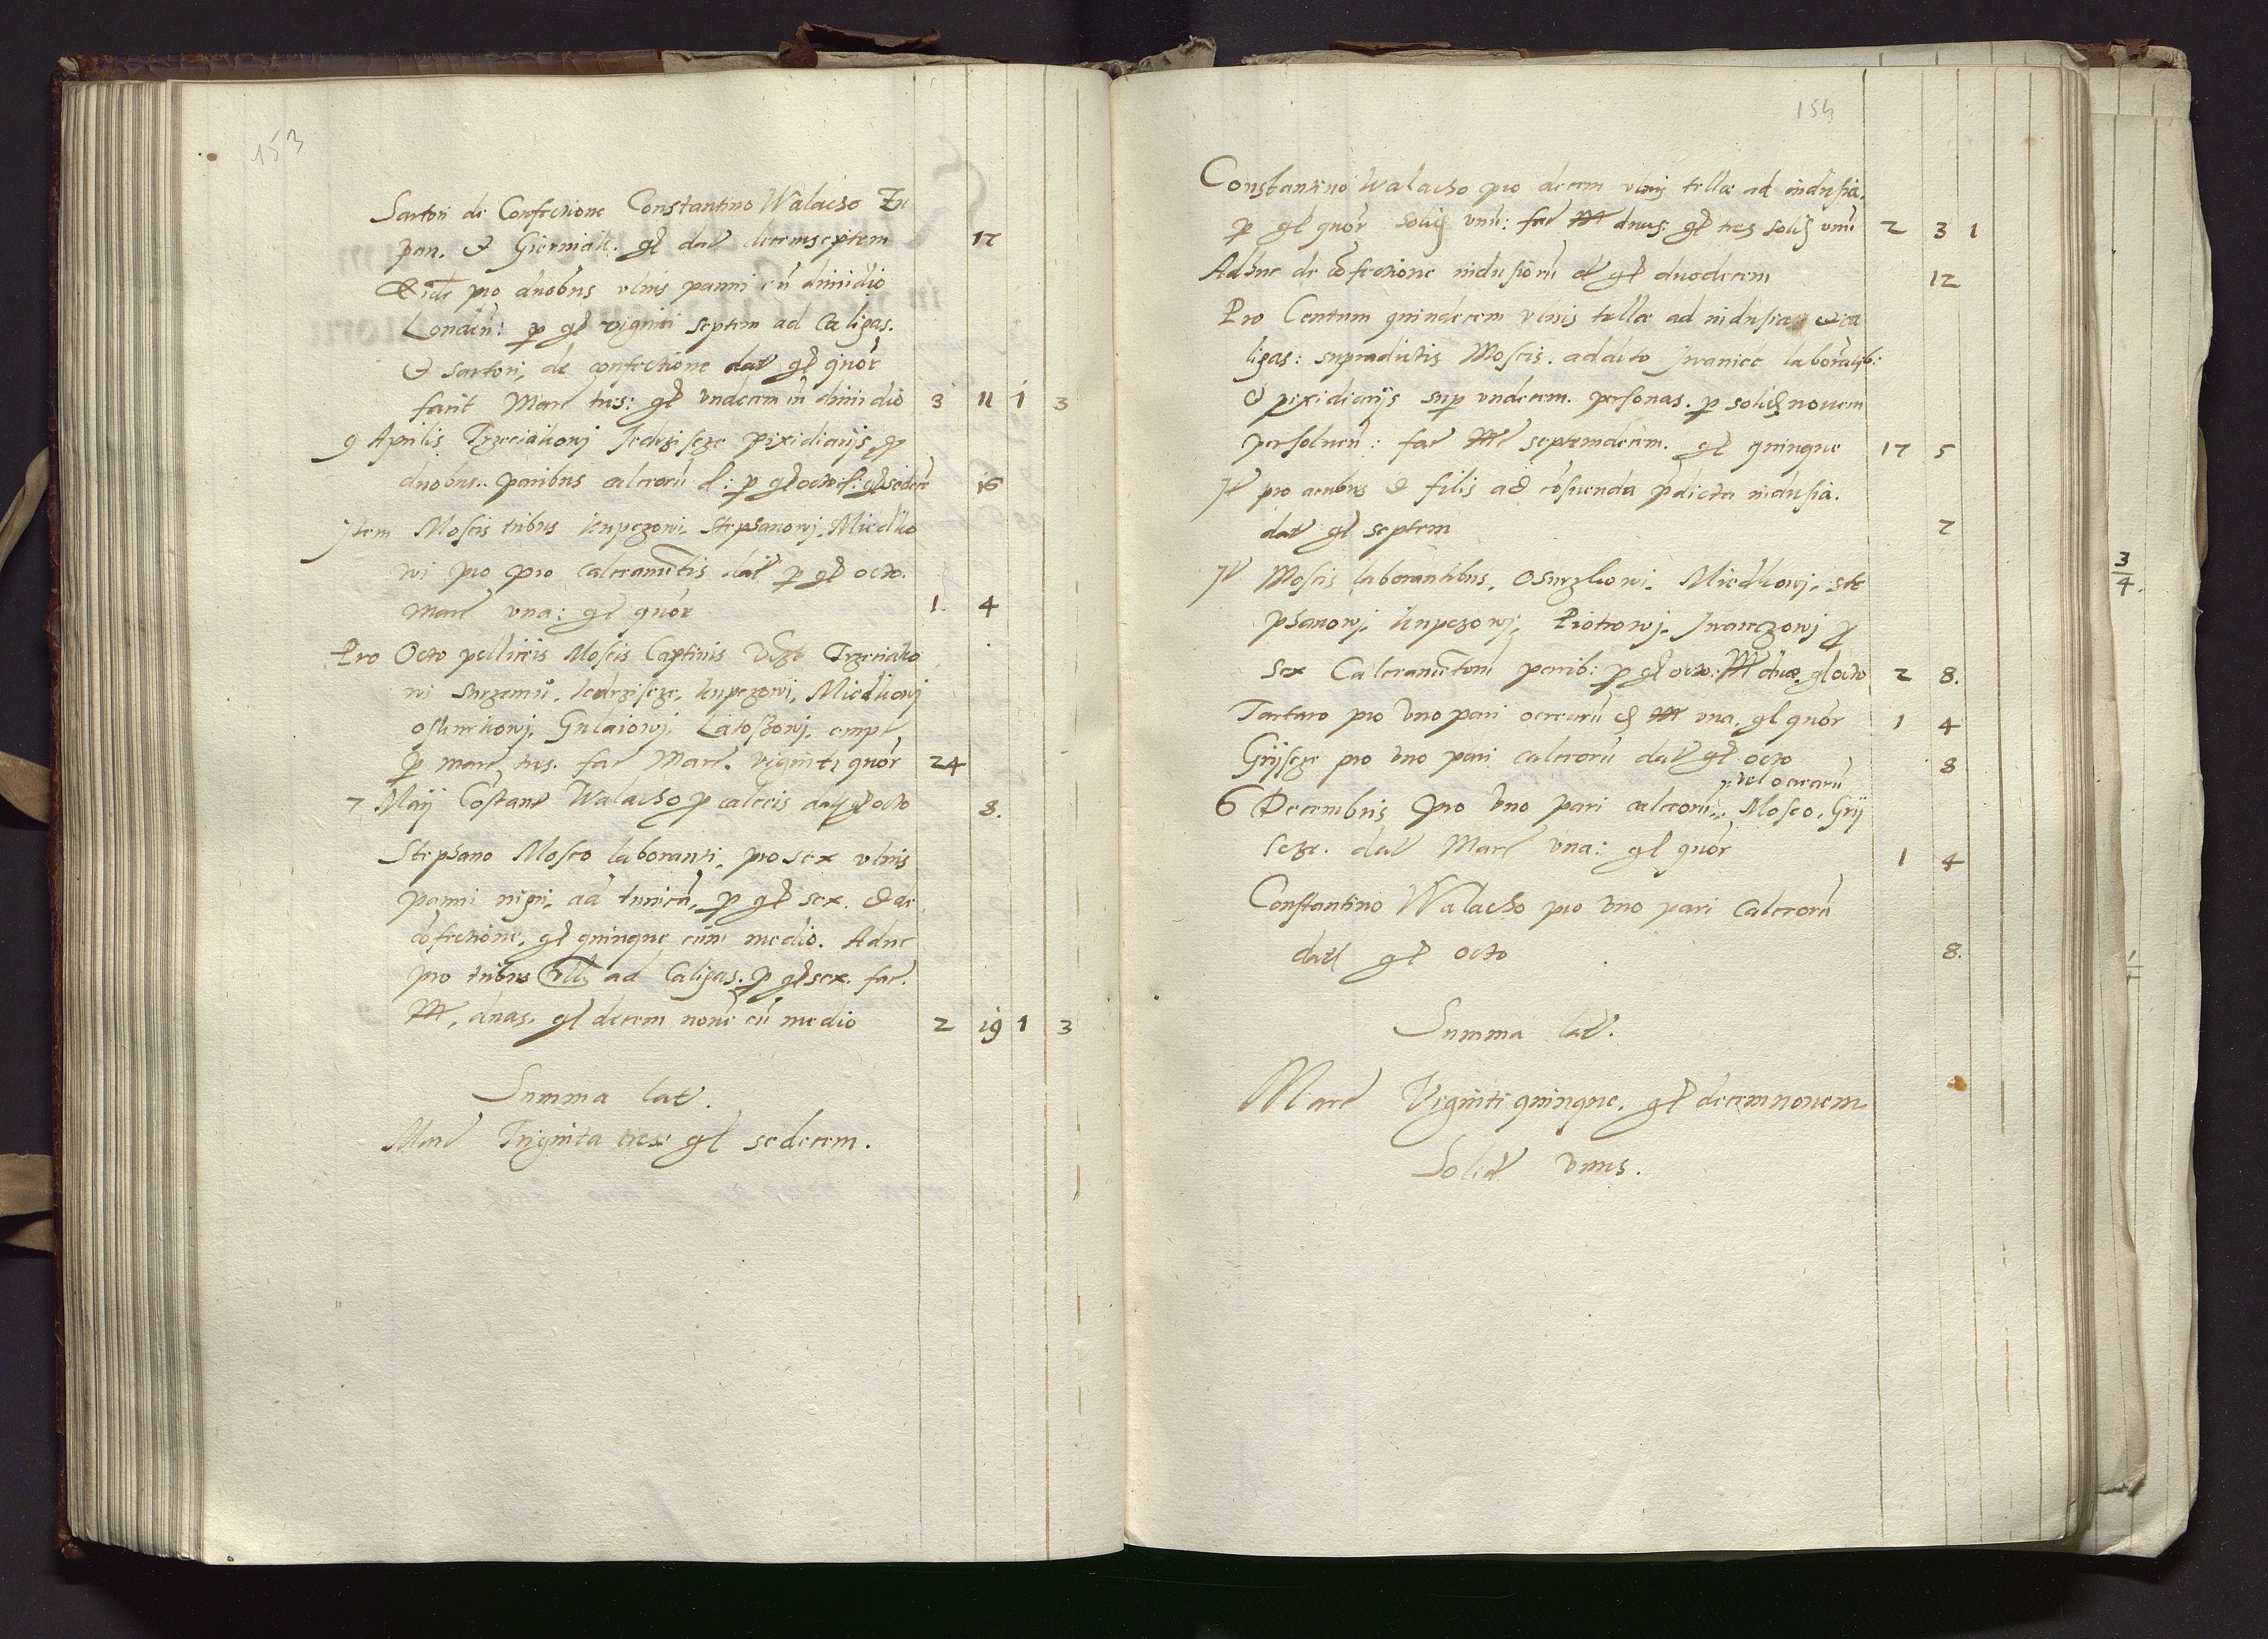 153
Sartori de Confectione Constantino Walacho Zu
pan. et Giermak. gl dat decemseptem 17
Eide pro duobus ulnis panni cu dimidio
Londin: p gl viginti septem ad Caligas.
et sartori, de confectione dat gl quor
facit Marc tres: gl undecim cu dimidio 3 11 1 3
9 Aprilis Trzeciakowj Jedrzisze pixidiarijs p
duobus paribus calceoru d: p gl octo f: gl sedecē 16
Jtem Moscis tribus kupczowi, Stephanowj, Miedko
wi pro pro calceamētis dat p gl octo.
marc una: gl quor 1. 4
Pro Octo pelliceis Moscis Captivis Trzeciako
wi Jedrzisze, kupczowi, Miedkowj
Gulaiowj, Latoszowj, empt
p marc tres. fac Marc. Viginti quor 24
7 Maij Costant Walacho p calceis dat gl octo 8.
Stephano Mosco laboranti, pro sex ulnis
panni nigri, ad tunicā, p gl sex. et de
cōfectione, gl quinque cum medio. Aduc
pro tribus ull ad Caligas. p gl sex. fac.
M, duas. gl decem nove cū medio 2 19 1 3
Summa lat.
Marc Triginta tres gl sedecem.
154
Constantino Walacho pro decem ulnis tellæ ad indusia,
p gl quor solid unū: fac M duas: gl tres solid unū 2 3 1
Adhuc de cōfectione indusiorū d gl duodecem 12
Pro Centum quindecem ulnis tellæ ad indusia et ca
ligas: supradictis Moscis. addito Jwaniec laboratib:
et pixidiarijs sup undecem. personas. p solid novem
persolven: fac M septemdecem. gl quinque 17 5
Jt pro acubus et filis ad cōsuenda pdicta indusia.
dat gl septem 7
Jt Moscis laborantibus, Miedkowj, Ste
phanowj, kupczowj, Piotrowj, Jwanczowj p
sex Calceamētorū parib: p gl octo: M duæ, gl octo 2 8.
Tartaro pro uno pari ocrearū d M una, gl quor 1 4
Grijsze pro uno pari calceorū dat gl octo 8
vel ocrearū
6 Decembris pro uno pari calceorū, Mosco, Grij
sze. dat Marc una: gl quor 1 4
Constantino Walacho pro uno pari Calceorū
dat gl octo 8.
Summa lat.
Marc Viginti quinque, gl decemnovem
Solid unus.
3
4.